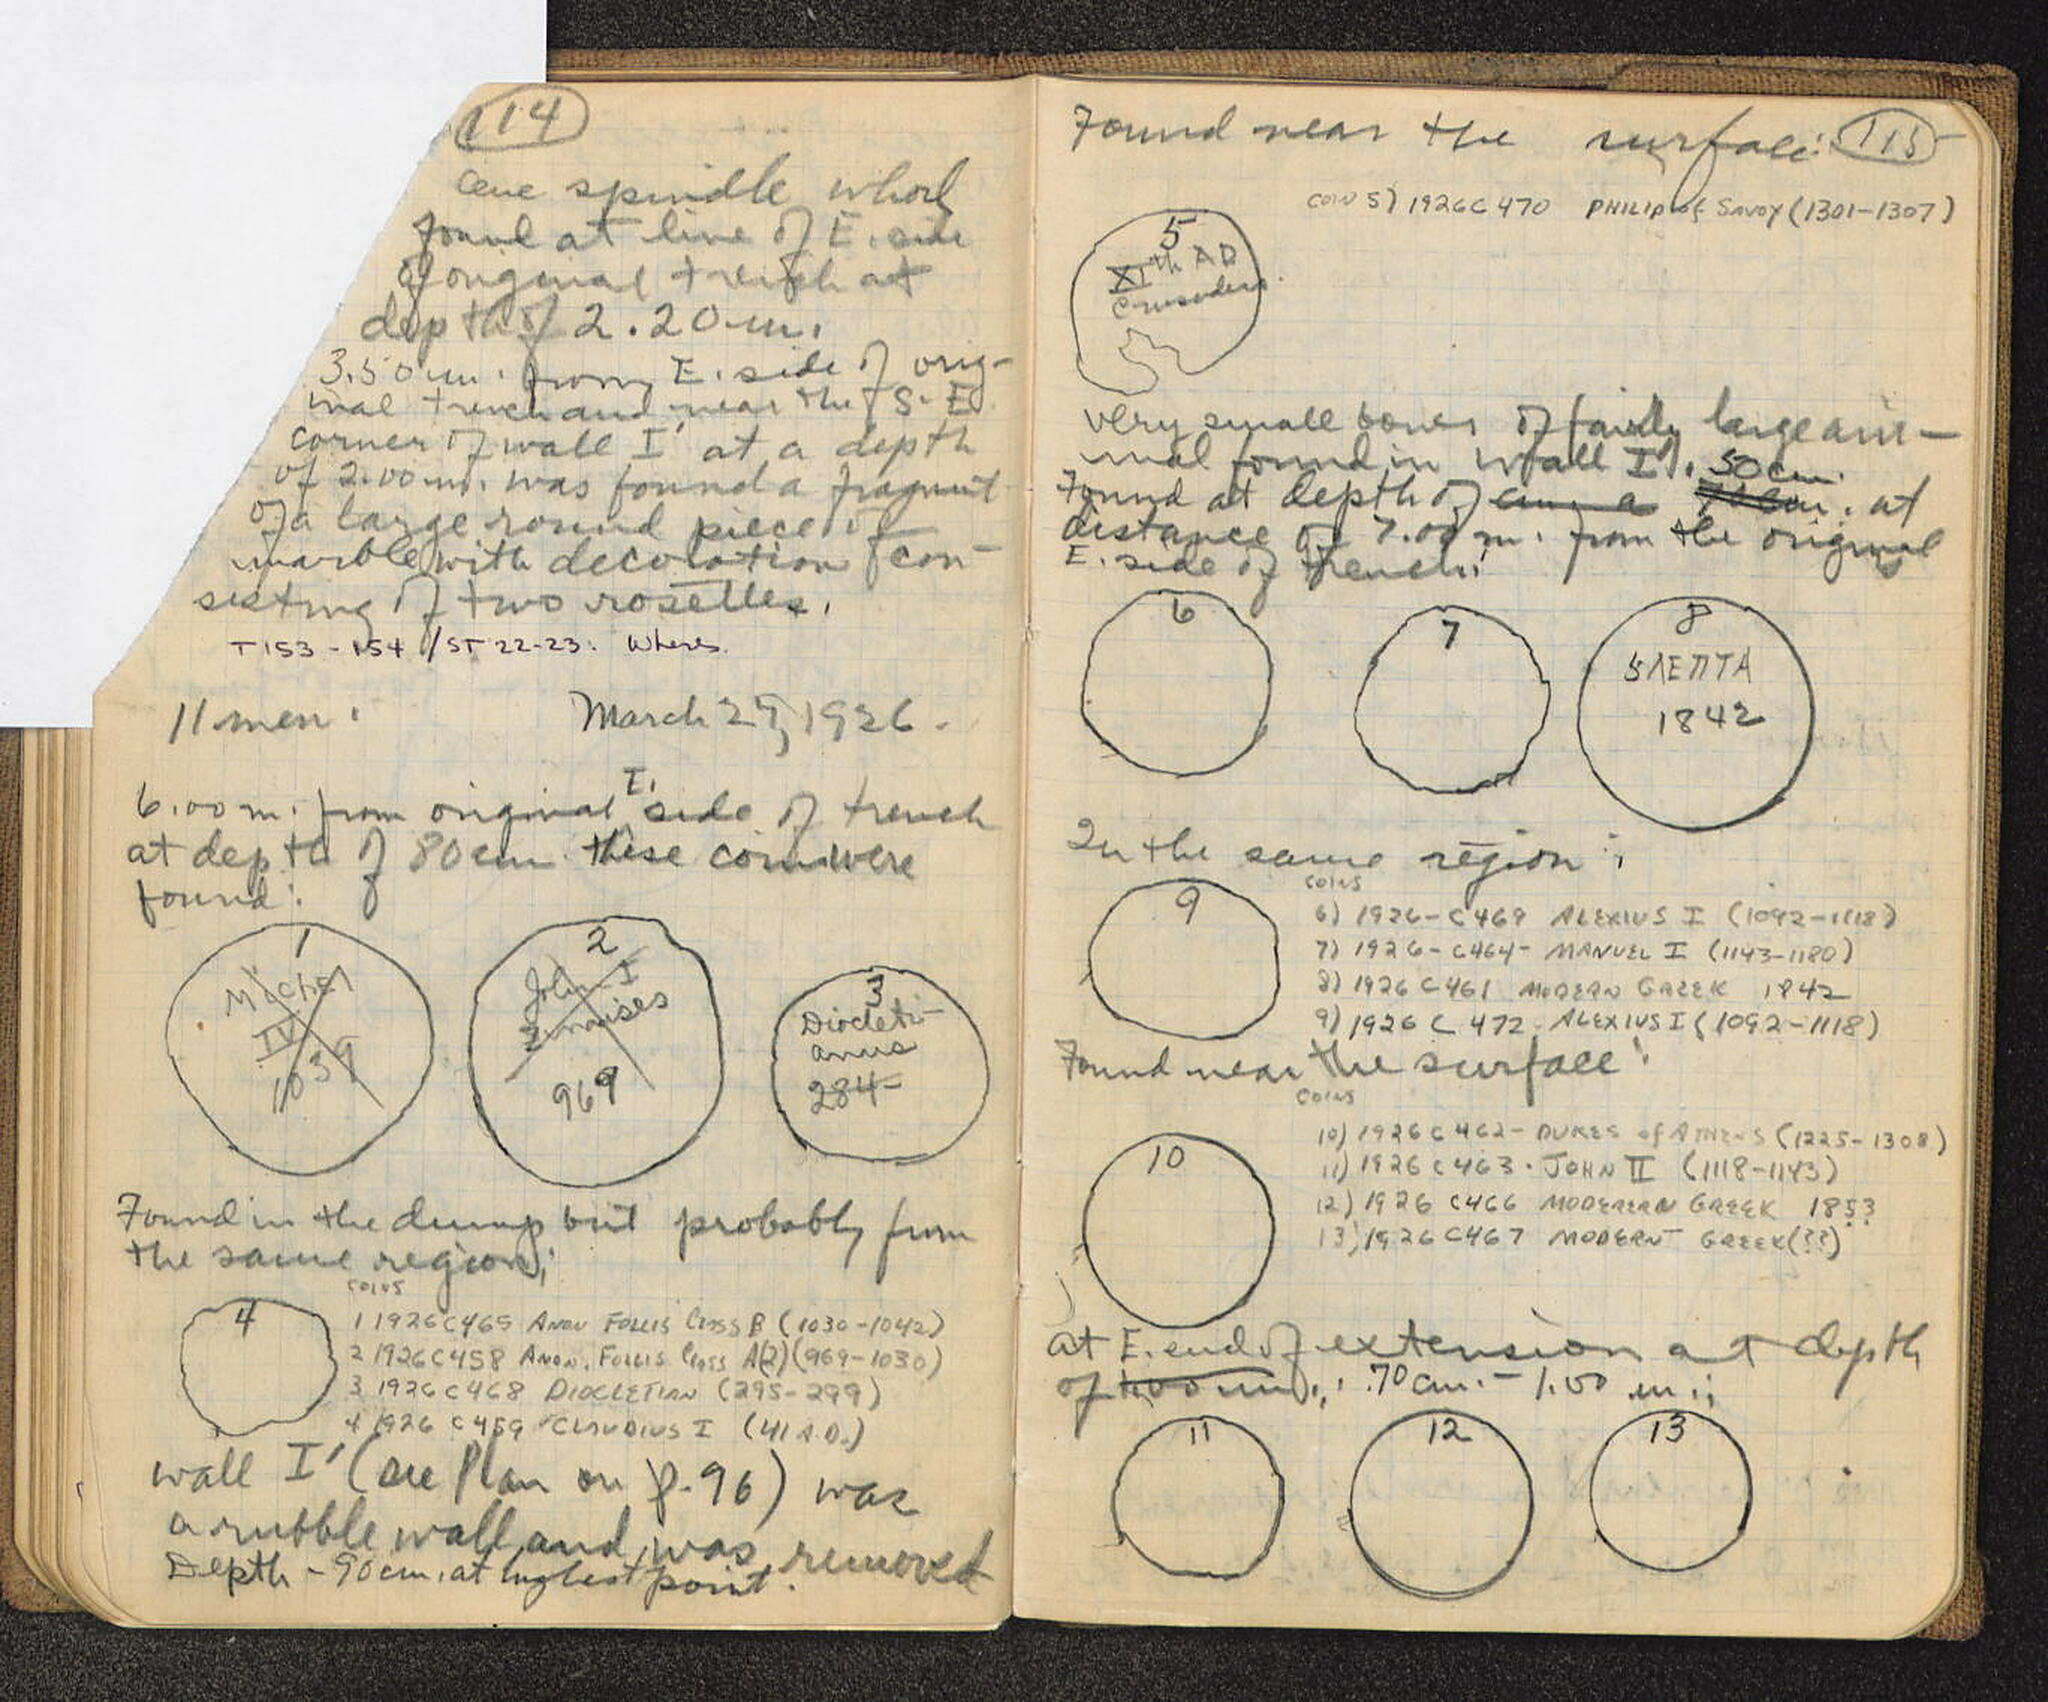 114
one spindle whorl
found at line of E. side
of original trench at
depth of 2.20 m.
3.50 m. from E. side of orig-
inal trench and near the S-E
corner of wall I' at a depth
of 2.00 m. was found a fragment
of a large round piece of
marble with decoration con-
sisting of two rosettes.
T 153 - 154 / ST 22-23: Where?
11 men. March 27, 1926.
6.00 m. from original E. side of trench
at depth of 80 cm these coins were
found:
1
Michel
IV
1039
2
John I
Zimaises
969
3
Diocleti-
anus
284-
Found in the dump but probably from
the same region;
COINS
4
1 1926 C 465 ANON FOLLIS CLASS B (1030-1042)
2 1926 C 458 ANON. FOLLIS CLASS A(2) (969-1030)
3 1926 C 468 DIOCLETIAN (295-299)
4 1926 C 459 CLAUDIUS I (41 A.D.)
wall I' (see Plan on p. 96) was
a rubble wall and was removed
Depth - 90 cm. at highest point.
Found near the surface: 115
COIN 5) 1926 C 470 PHILIP of SAVOY (1301-1307)
5
XIth AD
Crusaders
very small bones of fairly large ani-
mal found in wall I'. 50 cm.
Found at depth of at
distance of 7.00 m. from the original
E. side of trench:
6
7
8
5 ΛΕΠΤΑ
1842
In the same region:
COINS
9
6) 1926 - C 469 ALEXIUS I (1092-1118)
7) 1926 - C 464 - MANUEL I (1143-1180)
8) 1926 C 461 MODERN GREEK 1842
9) 1926 C 472 - ALEXIUS I (1092-1118)
Found near the surface:
COINS
10
10) 1926 C 462 - DUKES of ATHENS (1225-1308)
11) 1926 C 463 - JOHN II (1118-1143)
12) 1926 C 466 MODERERN GREEK 185?
13) 1926 C 467 MODERN GREEK (??)
at E. end of extension at depth
of 1.00 m.: .70 cm. - 1.00 m.:
11
12
13